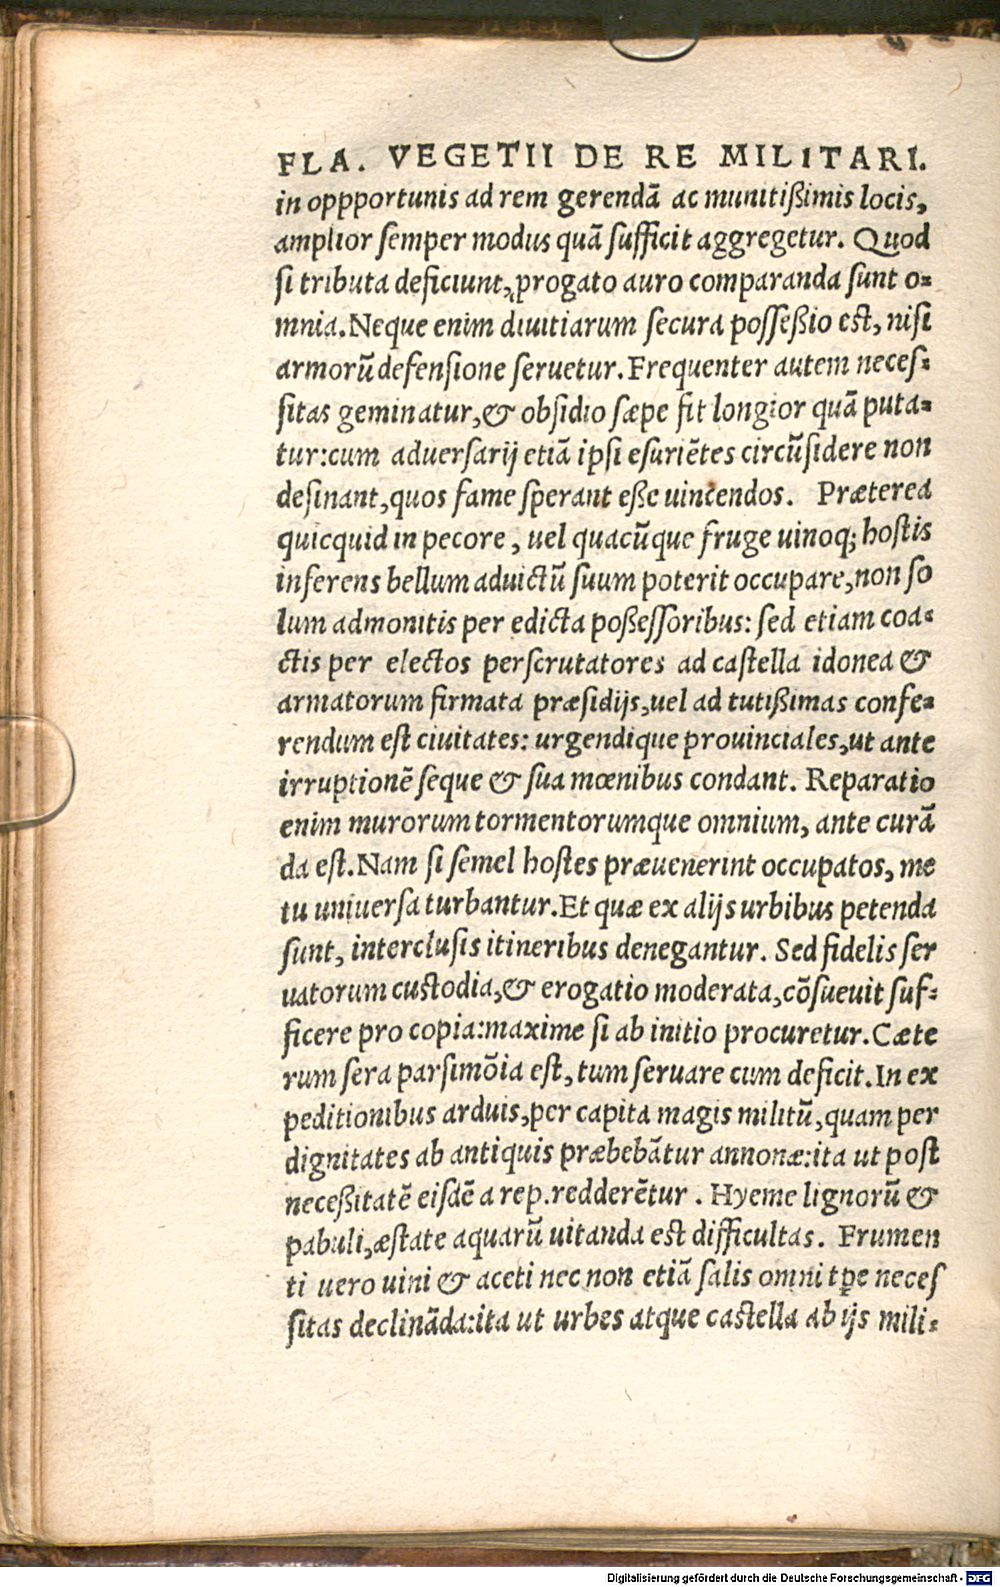 FLA. VEGETII DE RE MILITARI.
in oppportunis ad rem gerendā ac munitißimis locis,
amplior semper modus quā sufficit aggregetur. Quod
si tributa deficiunt, progato auro comparanda sunt o-
mnia. Neque enim diuitiarum secura posseßio est, nisi
armorū defensione seruetur. Frequenter autem neces-
sitas geminatur, & obsidio sæpe fit longior quā puta-
tur: cum aduersarij etiā ipsi esuriētes circūsidere non
desinant, quos fame sperant eße uincendos. Præterea
quicquid in pecore, uel quacūque fruge uinoq; hostis
inferens bellum ad uictū suum poterit occupare, non so
lum admonitis per edicta poßessoribus: sed etiam coa-
ctis per electos perscrutatores ad castella idonea &
armatorum firmata præsidijs, uel ad tutißimas confe-
rendum est ciuitates: urgendique prouinciales, ut ante
irruptionē seque & sua mœnibus condant. Reparatio
enim murorum tormentorumque omnium, ante curā
da est. Nam si semel hostes præuenerint occupatos, me
tu uniuersa turbantur. Et quæ ex alijs urbibus petenda
sunt, interclusis itineribus denegantur. Sed fidelis ser
uatorum custodia, & erogatio moderata, cōsueuit suf-
ficere pro copia: maxime si ab initio procuretur. Cæte
rum sera parsimōia est, tum seruare cum deficit. In ex
peditionibus arduis, per capita magis militū, quam per
dignitates ab antiquis præbebātur annonæ: ita ut post
neceßitatē eisdē a rep. redderētur. Hyeme lignorū &
pabuli, æstate aquarū uitanda est difficultas. Frumen
ti uero uini & aceti nec non etiā salis omni tp̄e neces
sitas declināda: ita ut urbes atque castella ab ijs mili-
Digitalisierung gefördert durch die Deutsche Forschungsgemeinschaft - DFG